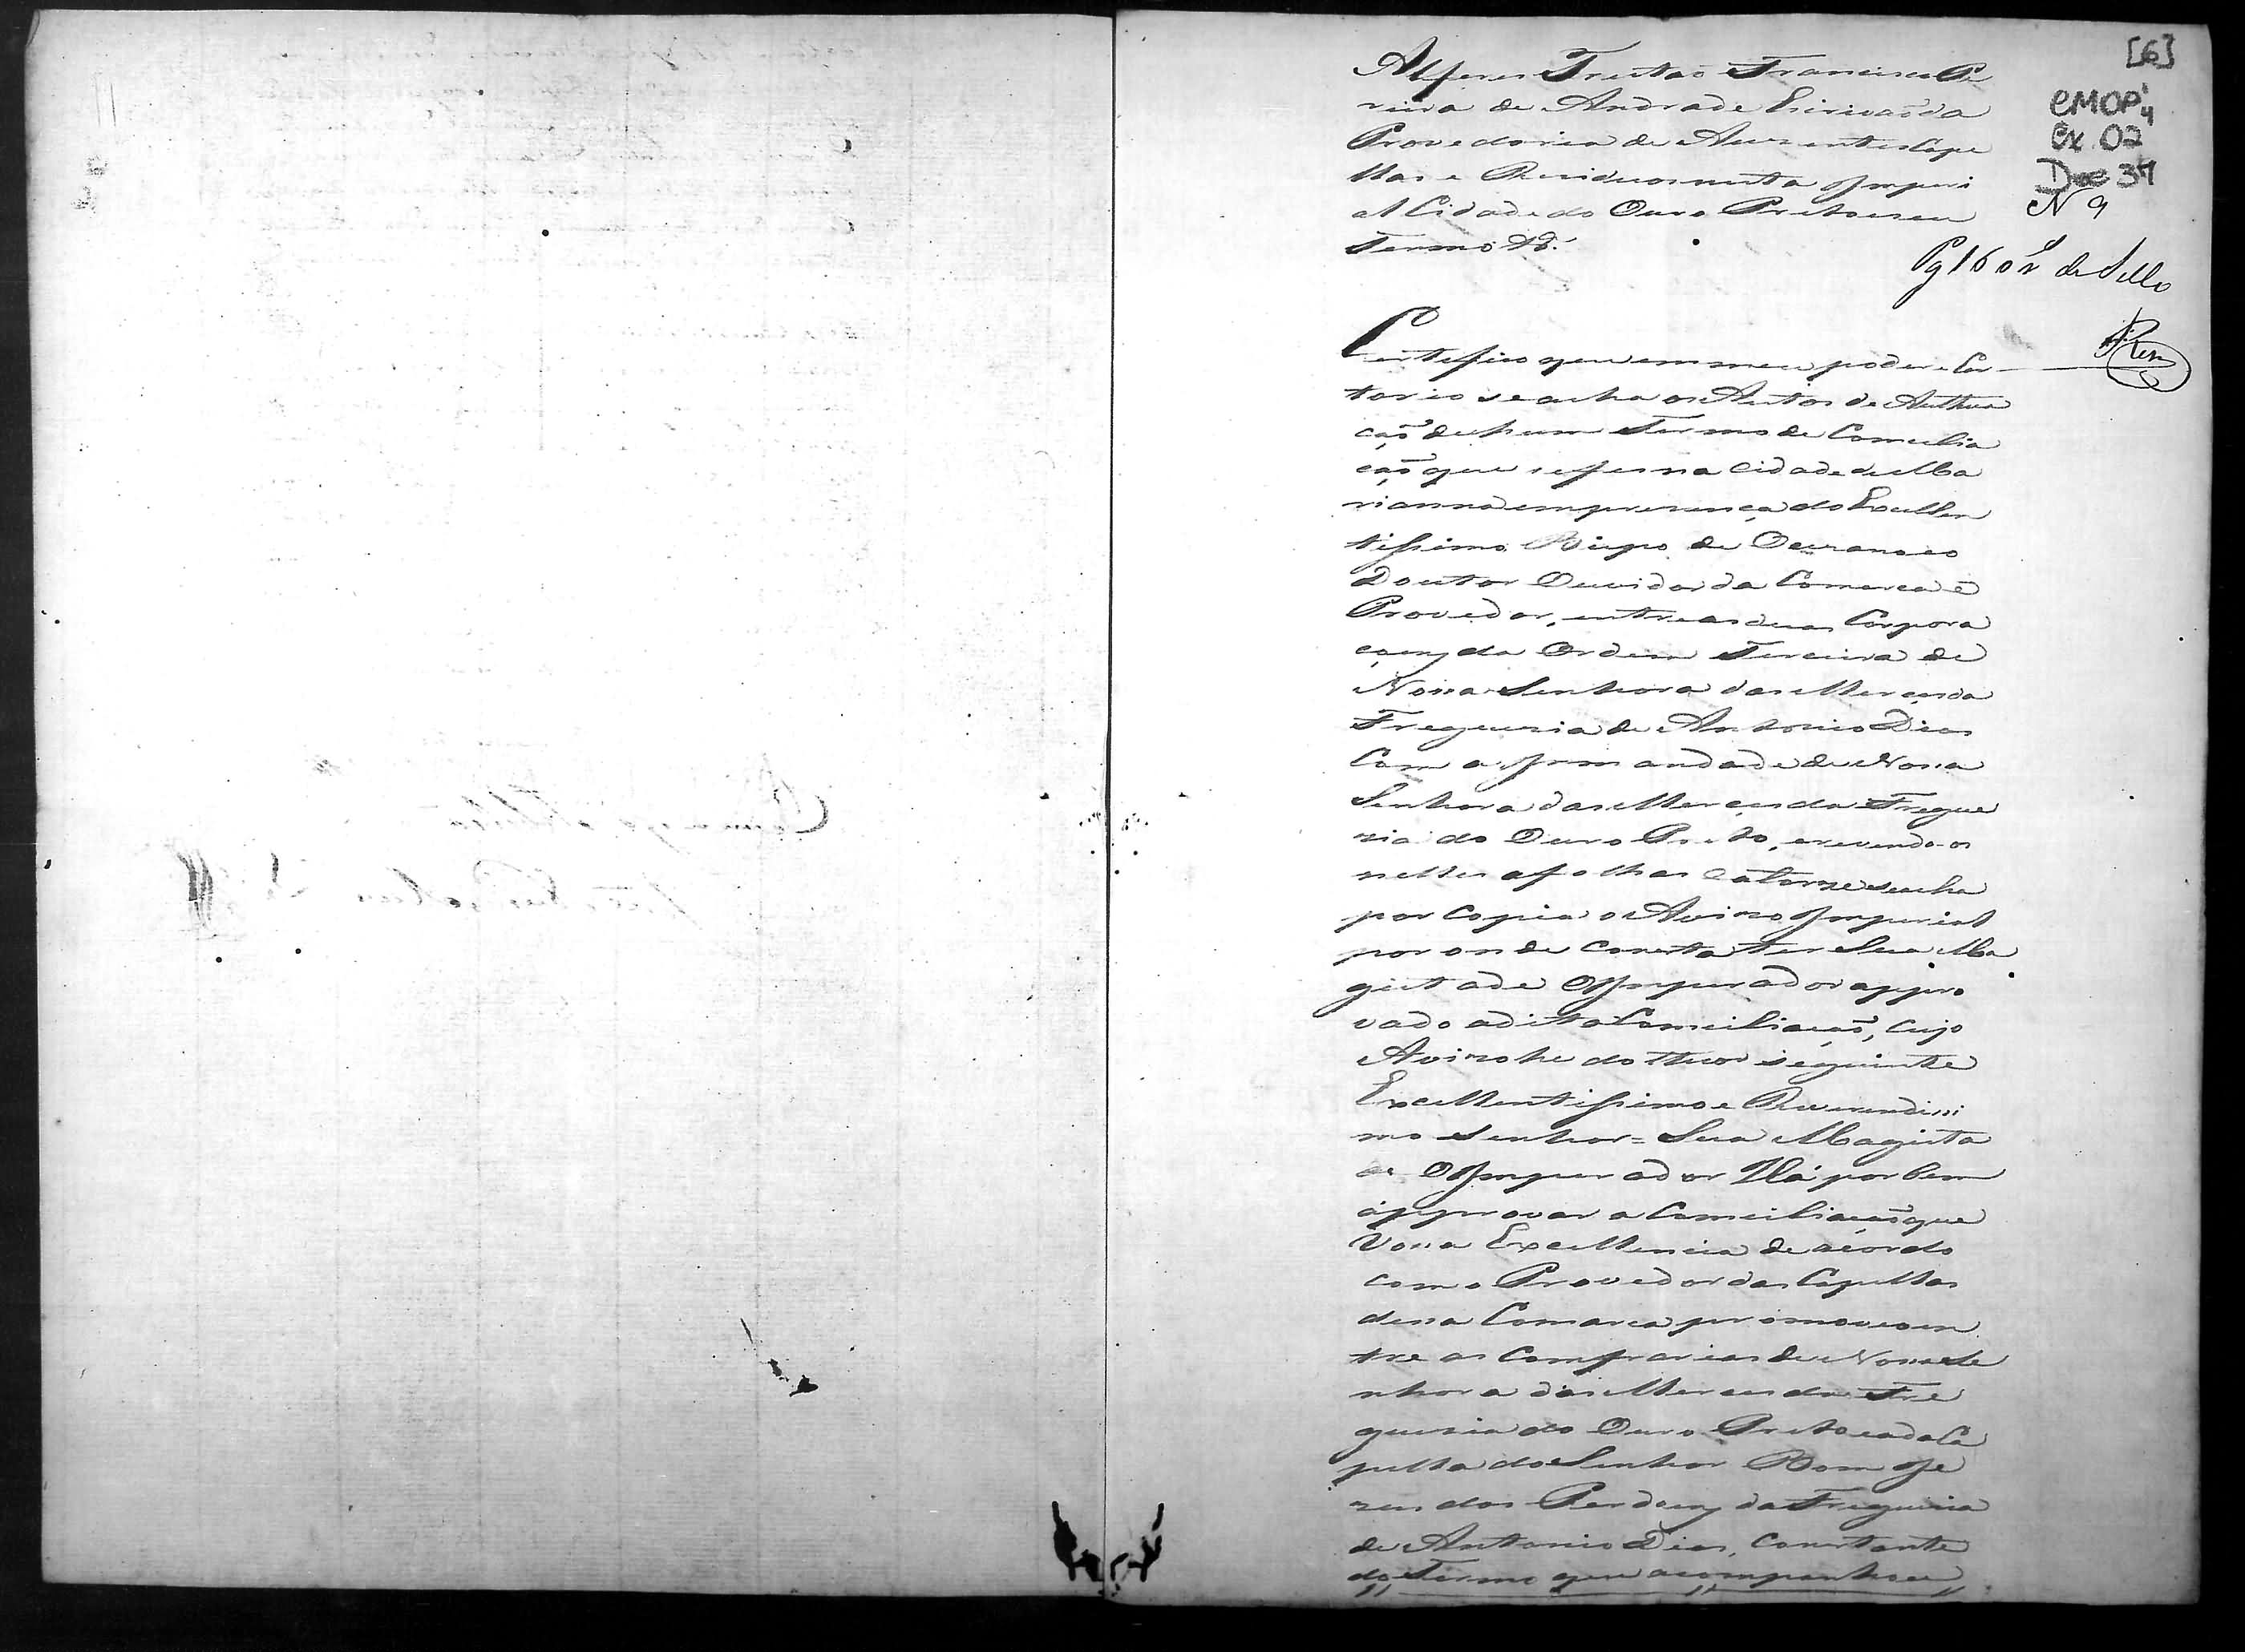 [6]
CMOP
Cx. 02
Doc 34
N 9
Pg 160 r de Sello
Alferes Tristaõ Francisco Pe
reira de Andrade Escrivaõ da
Provedoria de Auzentes Cape
llas e Residuos nesta Imperi
al Cidade do Ouro Preto e seu
Termo
Certefico que em meu poder e Car-
torio se acha os Autos de Authua
çaõ de hum Termo de Conselia
çaõ que se fes na Cidade de Ma
rianna em prezença do Excellen
tissimo Bispo Deocezano e o
Doutor Ouvidor da Comarca e
Provedor, entre as duas Corpora
çoens da Ordem Terceira de
Nossa Senhora das Merces da
Freguezia de Antonio Dias
Com a Irmandade de Nossa
Senhora das Merces da Fregue
zia do Ouro Preto, e revendo-os
nelles a folhas Catorze se acha
por Copia o Avizo Imperial
por onde Consta ter Sua Ma
gestade O Imperador appro
vado a dita Conciliaçaõ, Cujo
Avizo he do theor seguinte
Excellentissimo e Reverendissi
mo Senhor = Sua Magesta
de O Imperador Há por bem
approvar a Conciliaçaõ que
Vossa Excellencia de acordo
com o Provedor das Capellas
dessa Comarca promoveo en
tre as Confrarias de Nossa Se
nhora das Merces da Fre
guezia do Ouro Preto e a da Ca
pella do Senhor Bom Je
zus dos Perdoens da Freguezia
de Antonio Dias, Constante
do Termo que acompanhou